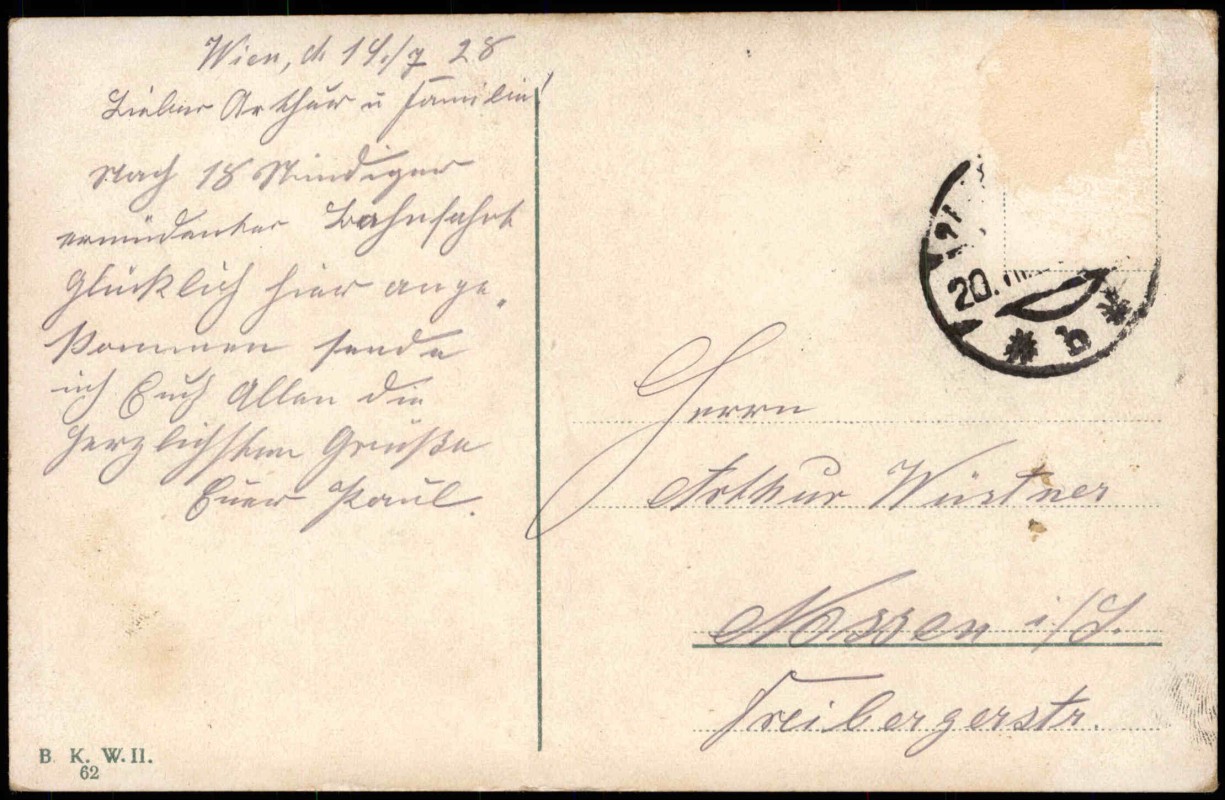 Wien, d 19./7 28
Lieber Arthur u Familie!
Nach 18 Stündiger
ermüdenter Bahnfahrt
Glücklich hier ange-
kommen sende
ich Euch Allen die
herzlichsten Grüße
Euer Paul.
20. VII.
* b *
Herrn
Arthur Wüstner
Nossen i/S.
Freibergerstr.
B. K. W. II.
62